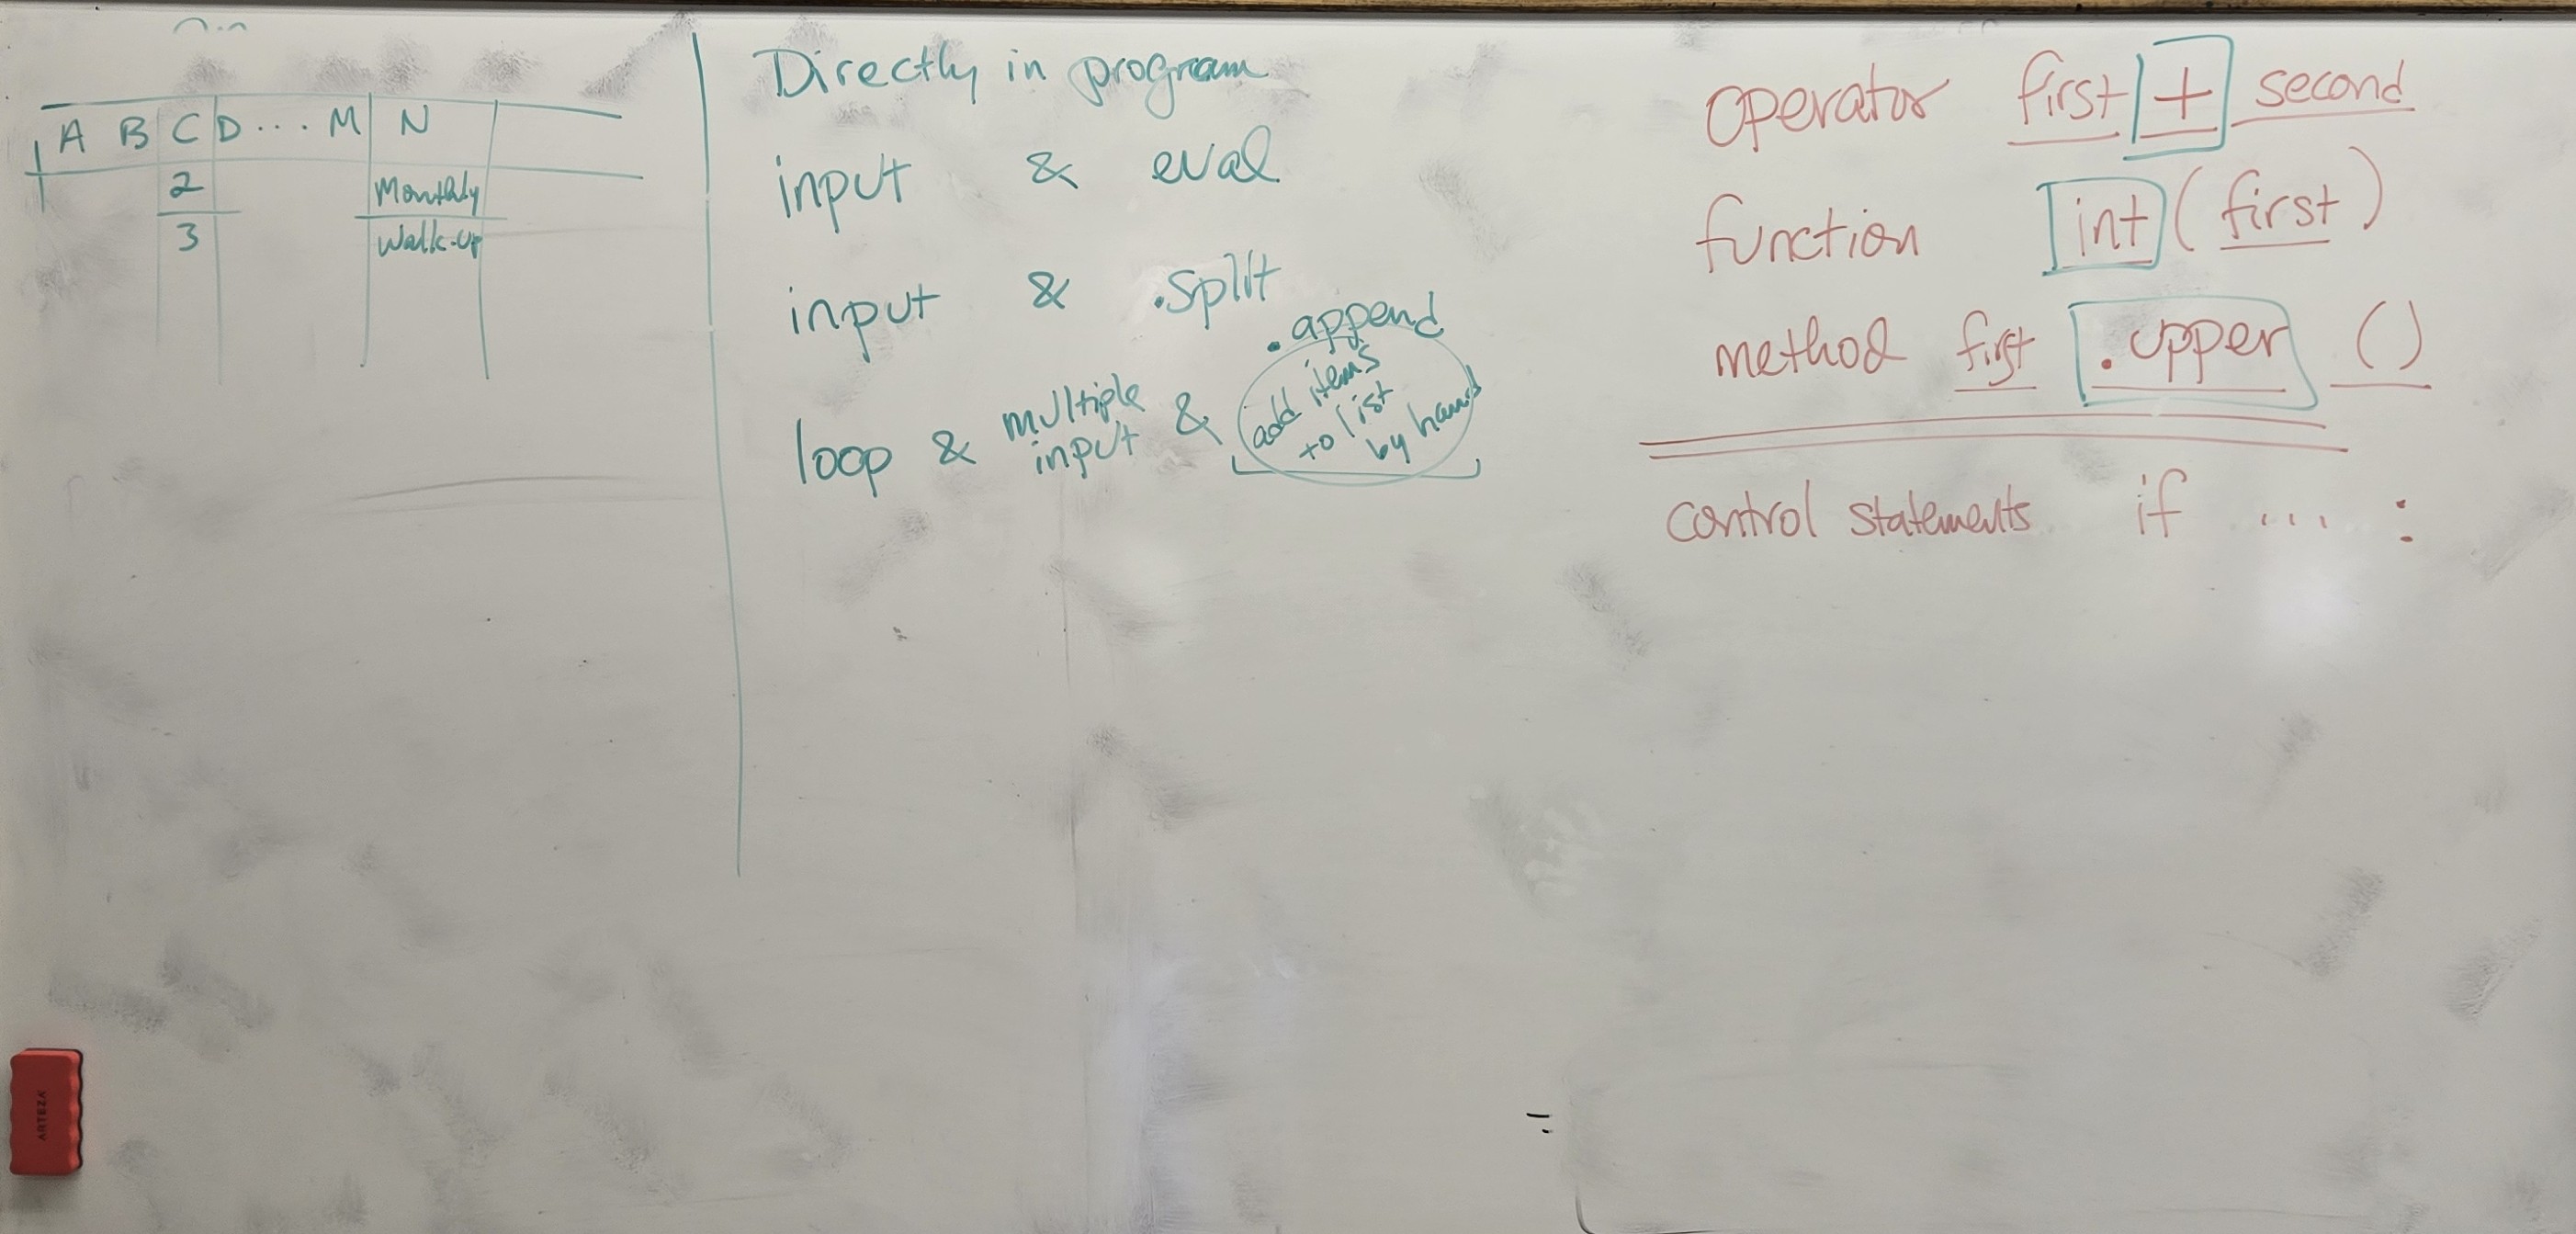 A B C D ... M N
2 Monthly
3 Walk-Up
Directly in program
input & eval
input & .split
.append
loop & multiple input & add items to list by hand
operator first + second
function int ( first )
method first .upper ()
control statements if ... :
ARTEZA